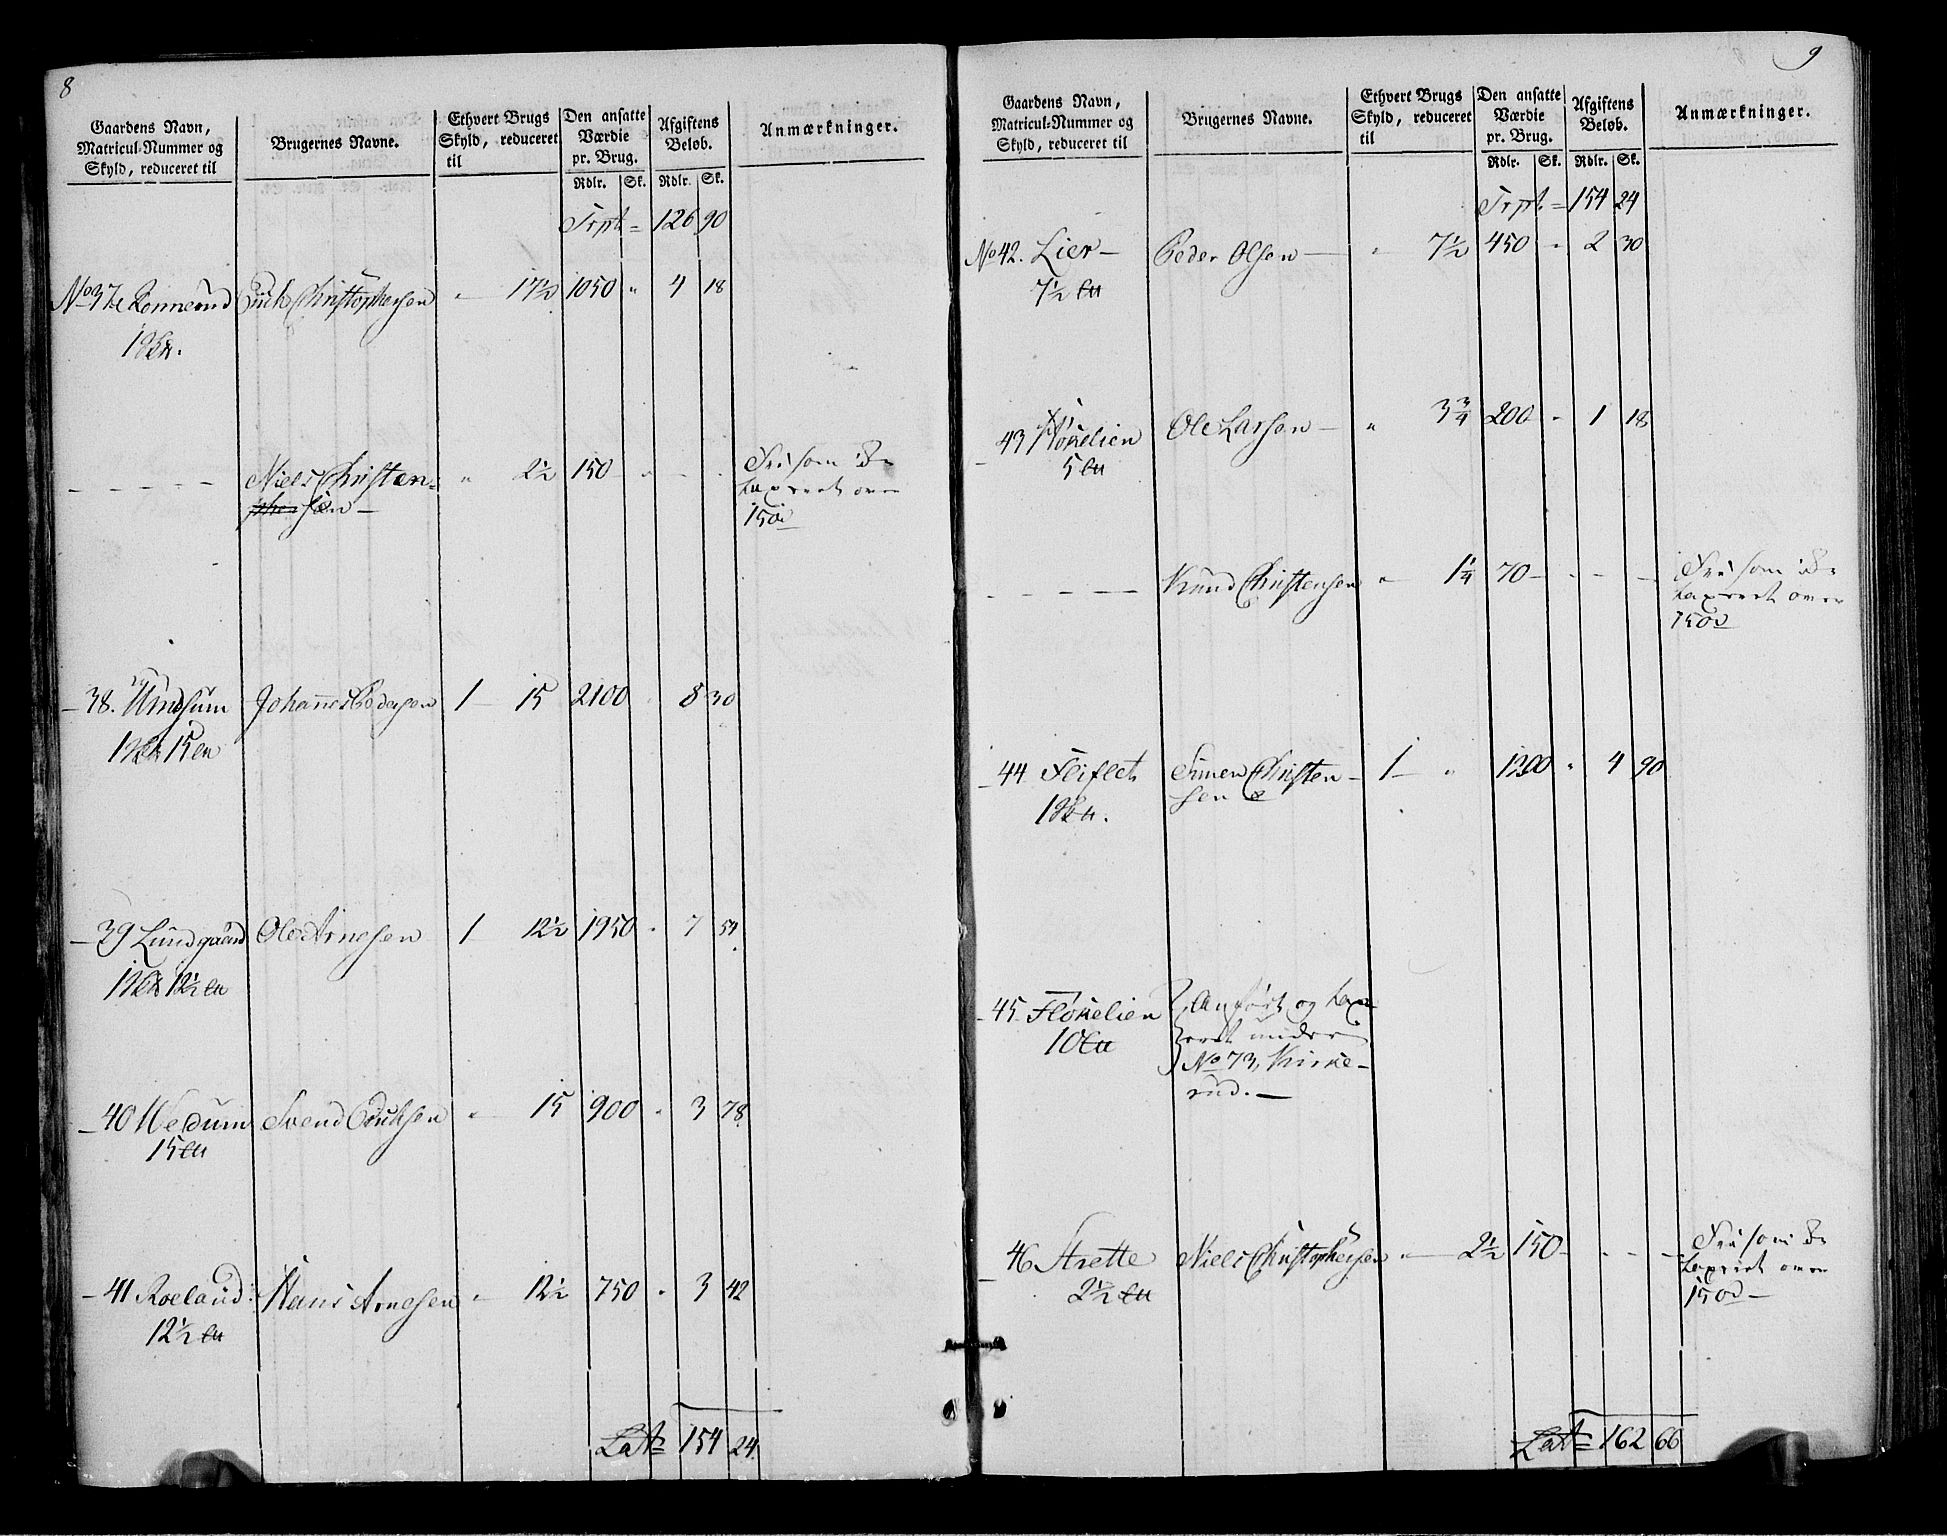 8
Gaardens Navn,
Matricul-Nummer og
Skyld, reduceret til
Brugernes Navne.
Ethvert Brugs
Skyld, reduceret
til
Den ansatte
Værdie
pr. Brug.
Rdlr. Sk.
Afgiftens
Beløb.
Rdlr. Sk.
Anmærkninger.
Trpt = 126 90
No 37 Rennerud Erich Christophersen " 17½ 1050 " 4 18
Niels Christen= " 2½ 150 " - - Fri som ikke
sen — taxeret over
150
38. Undsum Johannes Pedersen 1 15 2100 " 8 30
15
39 Lundgaard Ole Arnesen 1 12½ 1950 " 7 54
12½
40 Hedum Svend Erichsen " 15 900 " 3 78
15
41 Roeland Hans Arnesen " 12½ 750 " 3 42
12½
Lat= 154 24
9
Gaardens Navn,
Matricul-Nummer og
Skyld, reduceret til
Brugernes Navne.
Ethvert Brugs
Skyld, reduceret
til
Den ansatte
Værdie
pr. Brug.
Rdlr. Sk.
Afgiftens
Beløb.
Rdlr. Sk.
Anmærkninger.
Trpt = 154 24
No 42. Lier — Peder Olsen — " 7½ 450 " 2 30
7½
43 Ole Larsen — " 3¾ 200 " 1 18
5
Knud Christensen " 1¼ 70 - - - Fri som ikke
taxeret over
150
44 Fliflet Simen Christen - 1 " 1200 " 4 90
sen
45 Flokelien Anført og tax-
10 eret under
No 73, Kirke-
rud. —
46 Strette Niels Christophersen " 2½ 150 - - - Fri som ikke
2½ taxeret over
150 —
Lat= 162 66